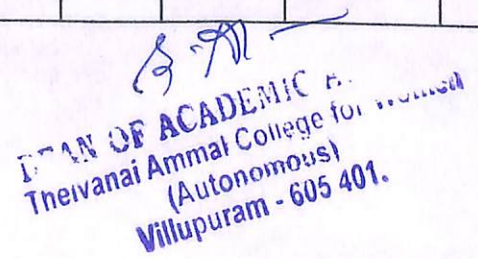 DEAN OF ACADEMIC
Theivanai Ammal College for Women
(Autonomous)
Villupuram - 605 401.